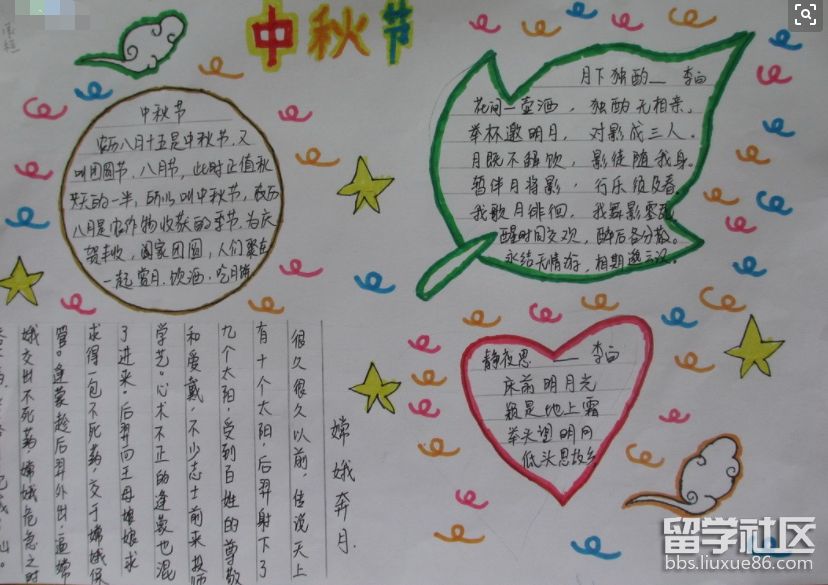 中秋节
中秋节
农历八月十五是中秋节,又
叫团圆节、八月节,此时正值秋
天的一半,所以叫中秋节,农历
八月是农作物收获的季节,为庆
贺丰收,阖家团圆,人们聚在
一起赏月、饮酒、吃月饼
月下独酌—— 李白
花间一壶酒,独酌无相亲。
举杯邀明月,对影成三人。
月既不解饮,影徒随我身。
暂伴月将影,行乐须及春。
我歌月徘徊,我舞影零乱
醒时同交欢,醉后各分散。
永结无情游,相期邈云汉。
静夜思—— 李白
床前明月光
疑是地上霜
举头望明月
低头思故乡
嫦娥奔月
很久很久以前,传说天上
有十个太阳,后羿射下了
九个太阳,受到百姓的尊敬
和爱戴,不少志士前来投师
学艺。心术不正的逢蒙也混
了进来,后羿向王母娘娘求
求得一包不死药,交于嫦娥保
管。逢蒙趁后羿外出,逼嫦
娥交出不死药,嫦娥危急之时
留学社区
bbs.liuxue86.com